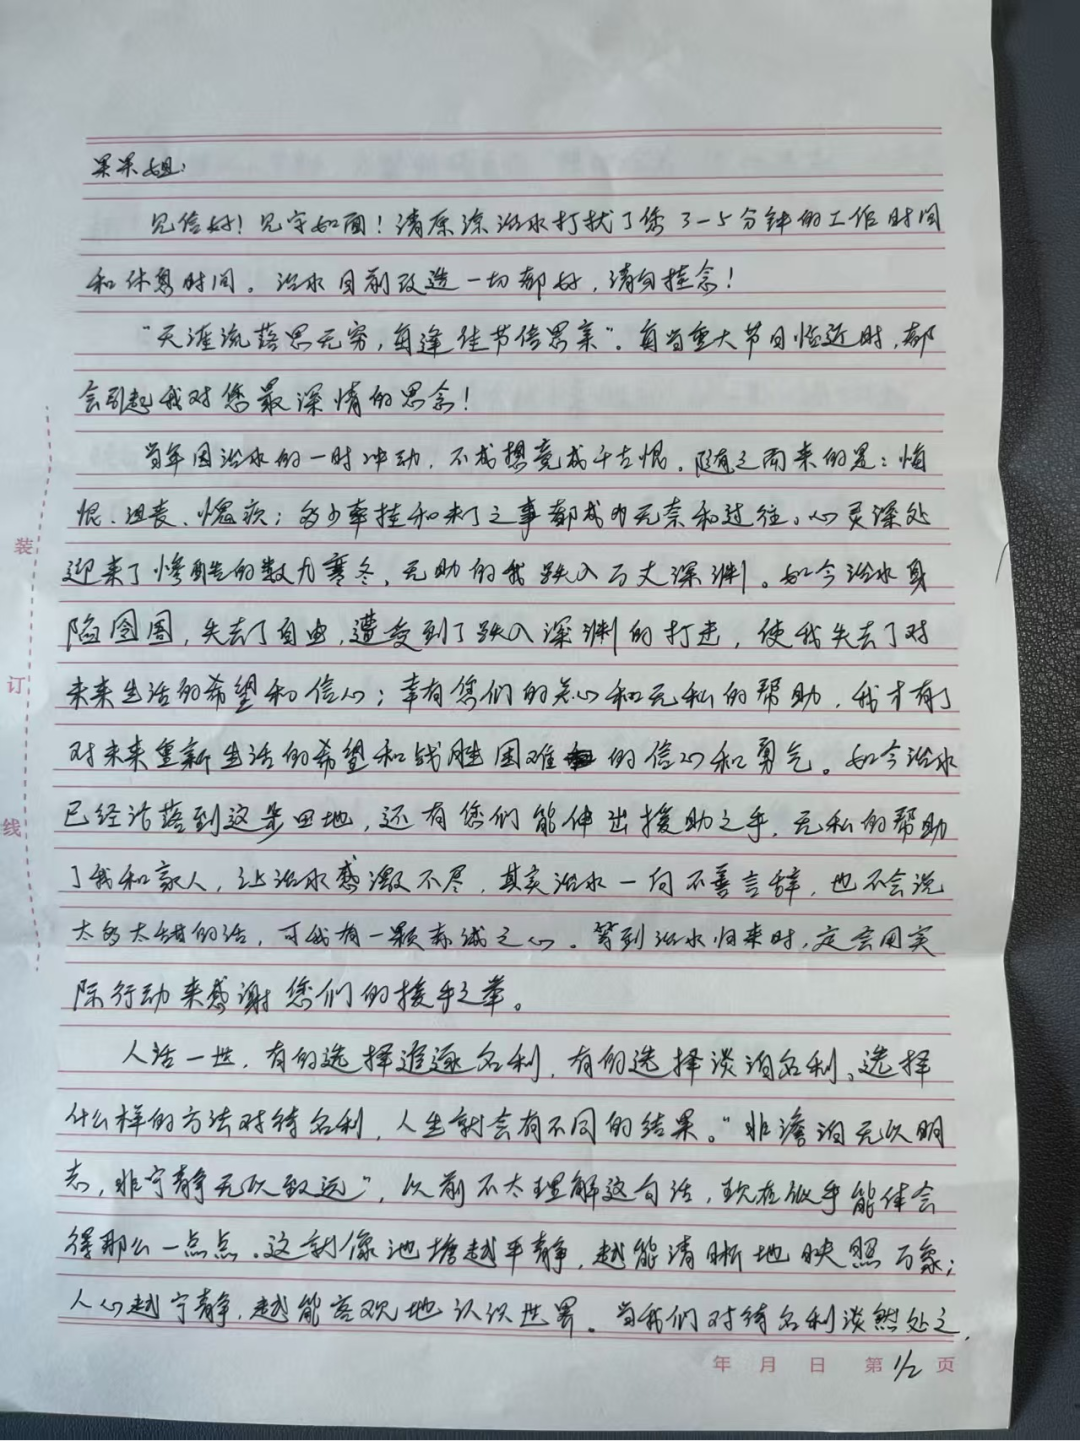 果果姐：
见信好！见字如面！请原谅治水打扰了您3-5分钟的工作时间
和休息时间。治水目前改造一切都好，请勿挂念！
“天涯流落思无穷，每逢佳节倍思亲”。每当重大节日临近时，都
会引起我对您最深情的思念！
当年因治水的一时冲动，不成想竟成千古恨。随之而来的是：悔
恨、沮丧、愧疚；多少牵挂和未了之事都成为无奈和过往。心灵深处
迎来了惨酷的数九寒冬，无助的我跌入万丈深渊。如今治水身
陷囹圄，失去了自由，遭受到了跌入深渊的打击，使我失去了对
未来生活的希望和信心；幸有您们的关心和无私的帮助，我才有了
对未来重新生活的希望和战胜困难的信心和勇气。如今治水
已经沽落到这步田地，还有您们能伸出援助之手，无私的帮助
了我和家人，让治水感激不尽，其实治水一向不善言辞，也不会说
太多太甜的话，可我有一颗赤诚之心。等到治水归来时，定会用实
际行动来感谢您们的援手之举。
人活一世，有的选择追逐名利，有的选择淡泊名利。选择
什么样的方法对待名利，人生就会有不同的结果。“非澹泊无以明
志，非宁静无以致远”，以前不太理解这句话，现在似乎能体会
得那么一点点。这就像池塘越平静，越能清晰地映照万象；
人心越宁静，越能客观地认识世界。当我们对待名利淡然处之，
年 月 日 第1/2页
装
订
线